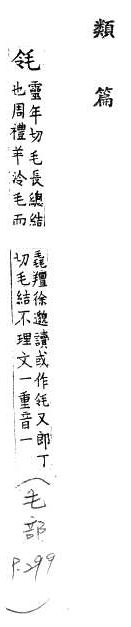 類篇
㲆
靈年切毛長總結
也周禮羊泠毛而
毳羶徐邈讀或作㲆又郎丁
切毛結不理文一重音一
(毛部
P.299)